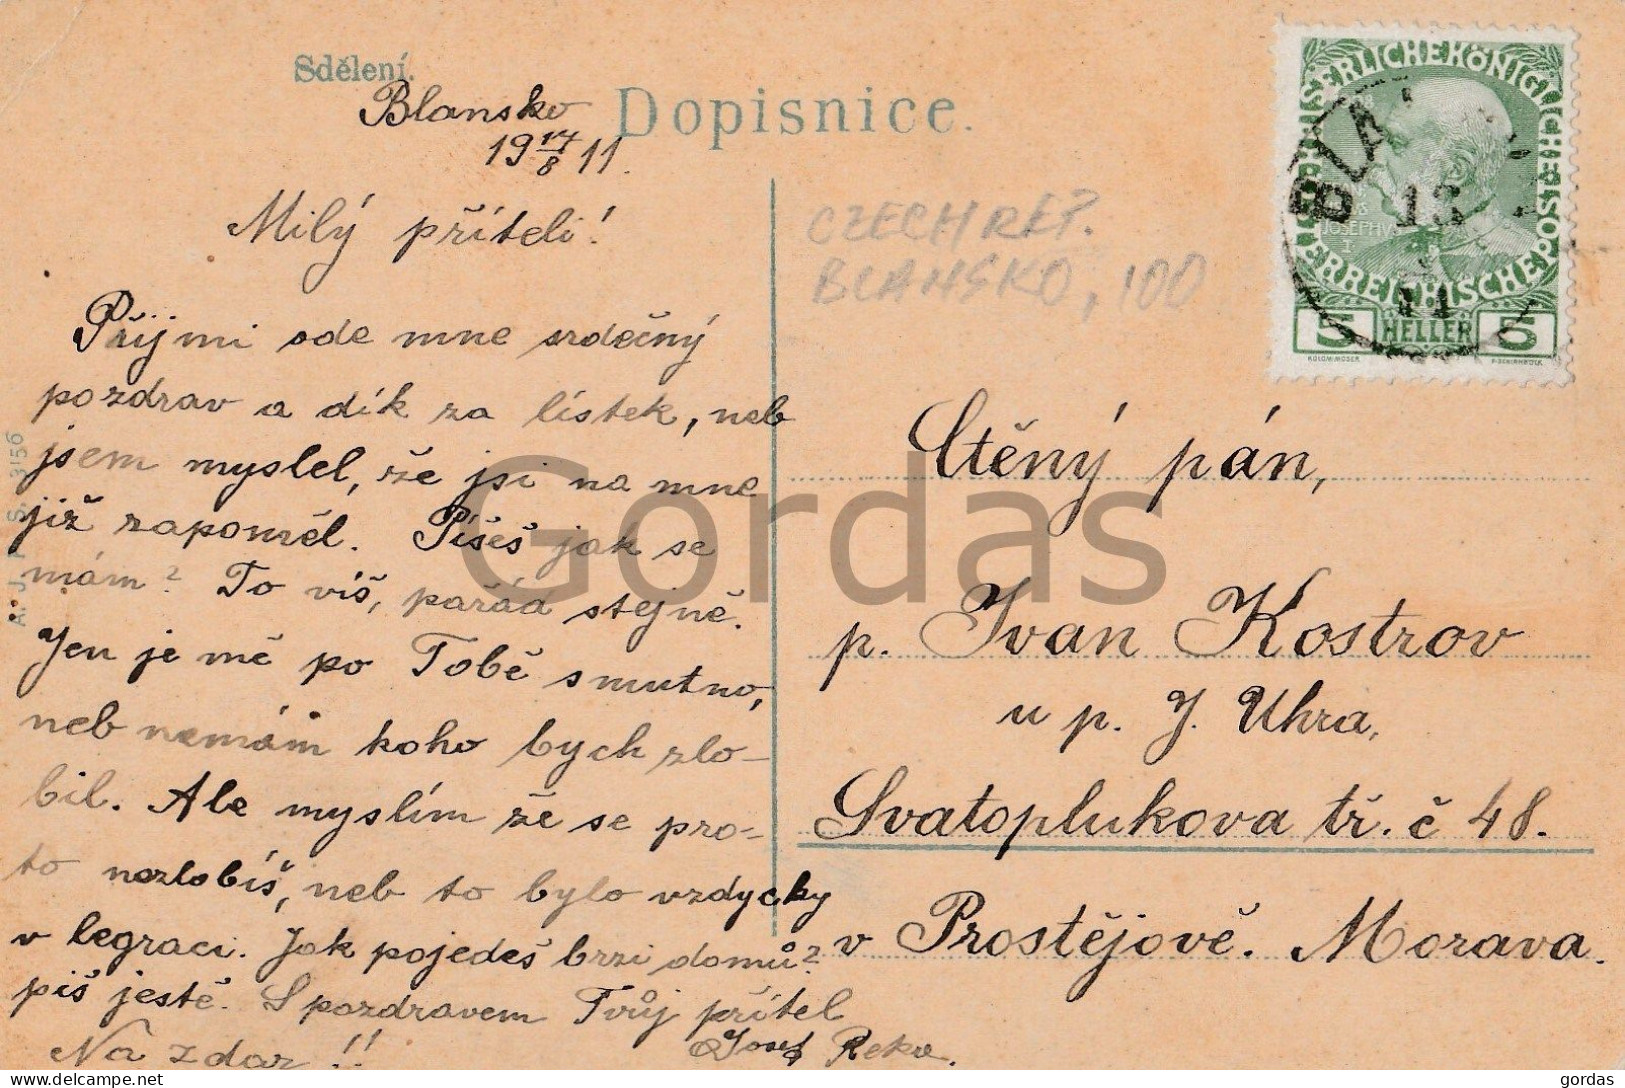 Sdělení.
Dopisnice.
Blansko
19 17/8 11.
Milý příteli!
Přijmi ode mne srdečný
pozdrav a dík za lístek, neb
jsem myslel, že jsi na mne
již zapoměl. Píšeš jak se
mám? To víš, pařád stejně.
Jen je mě po Tobě smutno,
neb nemám koho bych zlo-
bil. Ale myslím že se pro-
to nezlobíš, neb to bylo vzdycky
v legraci. Jak pojedeš brzi domů?
piš ještě. S pozdravem Tvůj přítel
Na zdar!! Josef
CZECH REP.
BLANSKO, 100
KAISERLICHE KÖNIGLICHE ÖSTERREICHISCHE POST
JOSEPHVS
I
5 HELLER 5
KOLOM·MOSER.
BLA
13
11
Ctěný pán,
p. Ivan Kostrov
u p. J. Uhra,
Svatoplukova tř. č 48.
v Prostějově. Morava.
3156
Gordas
www.delcampe.net
gordas